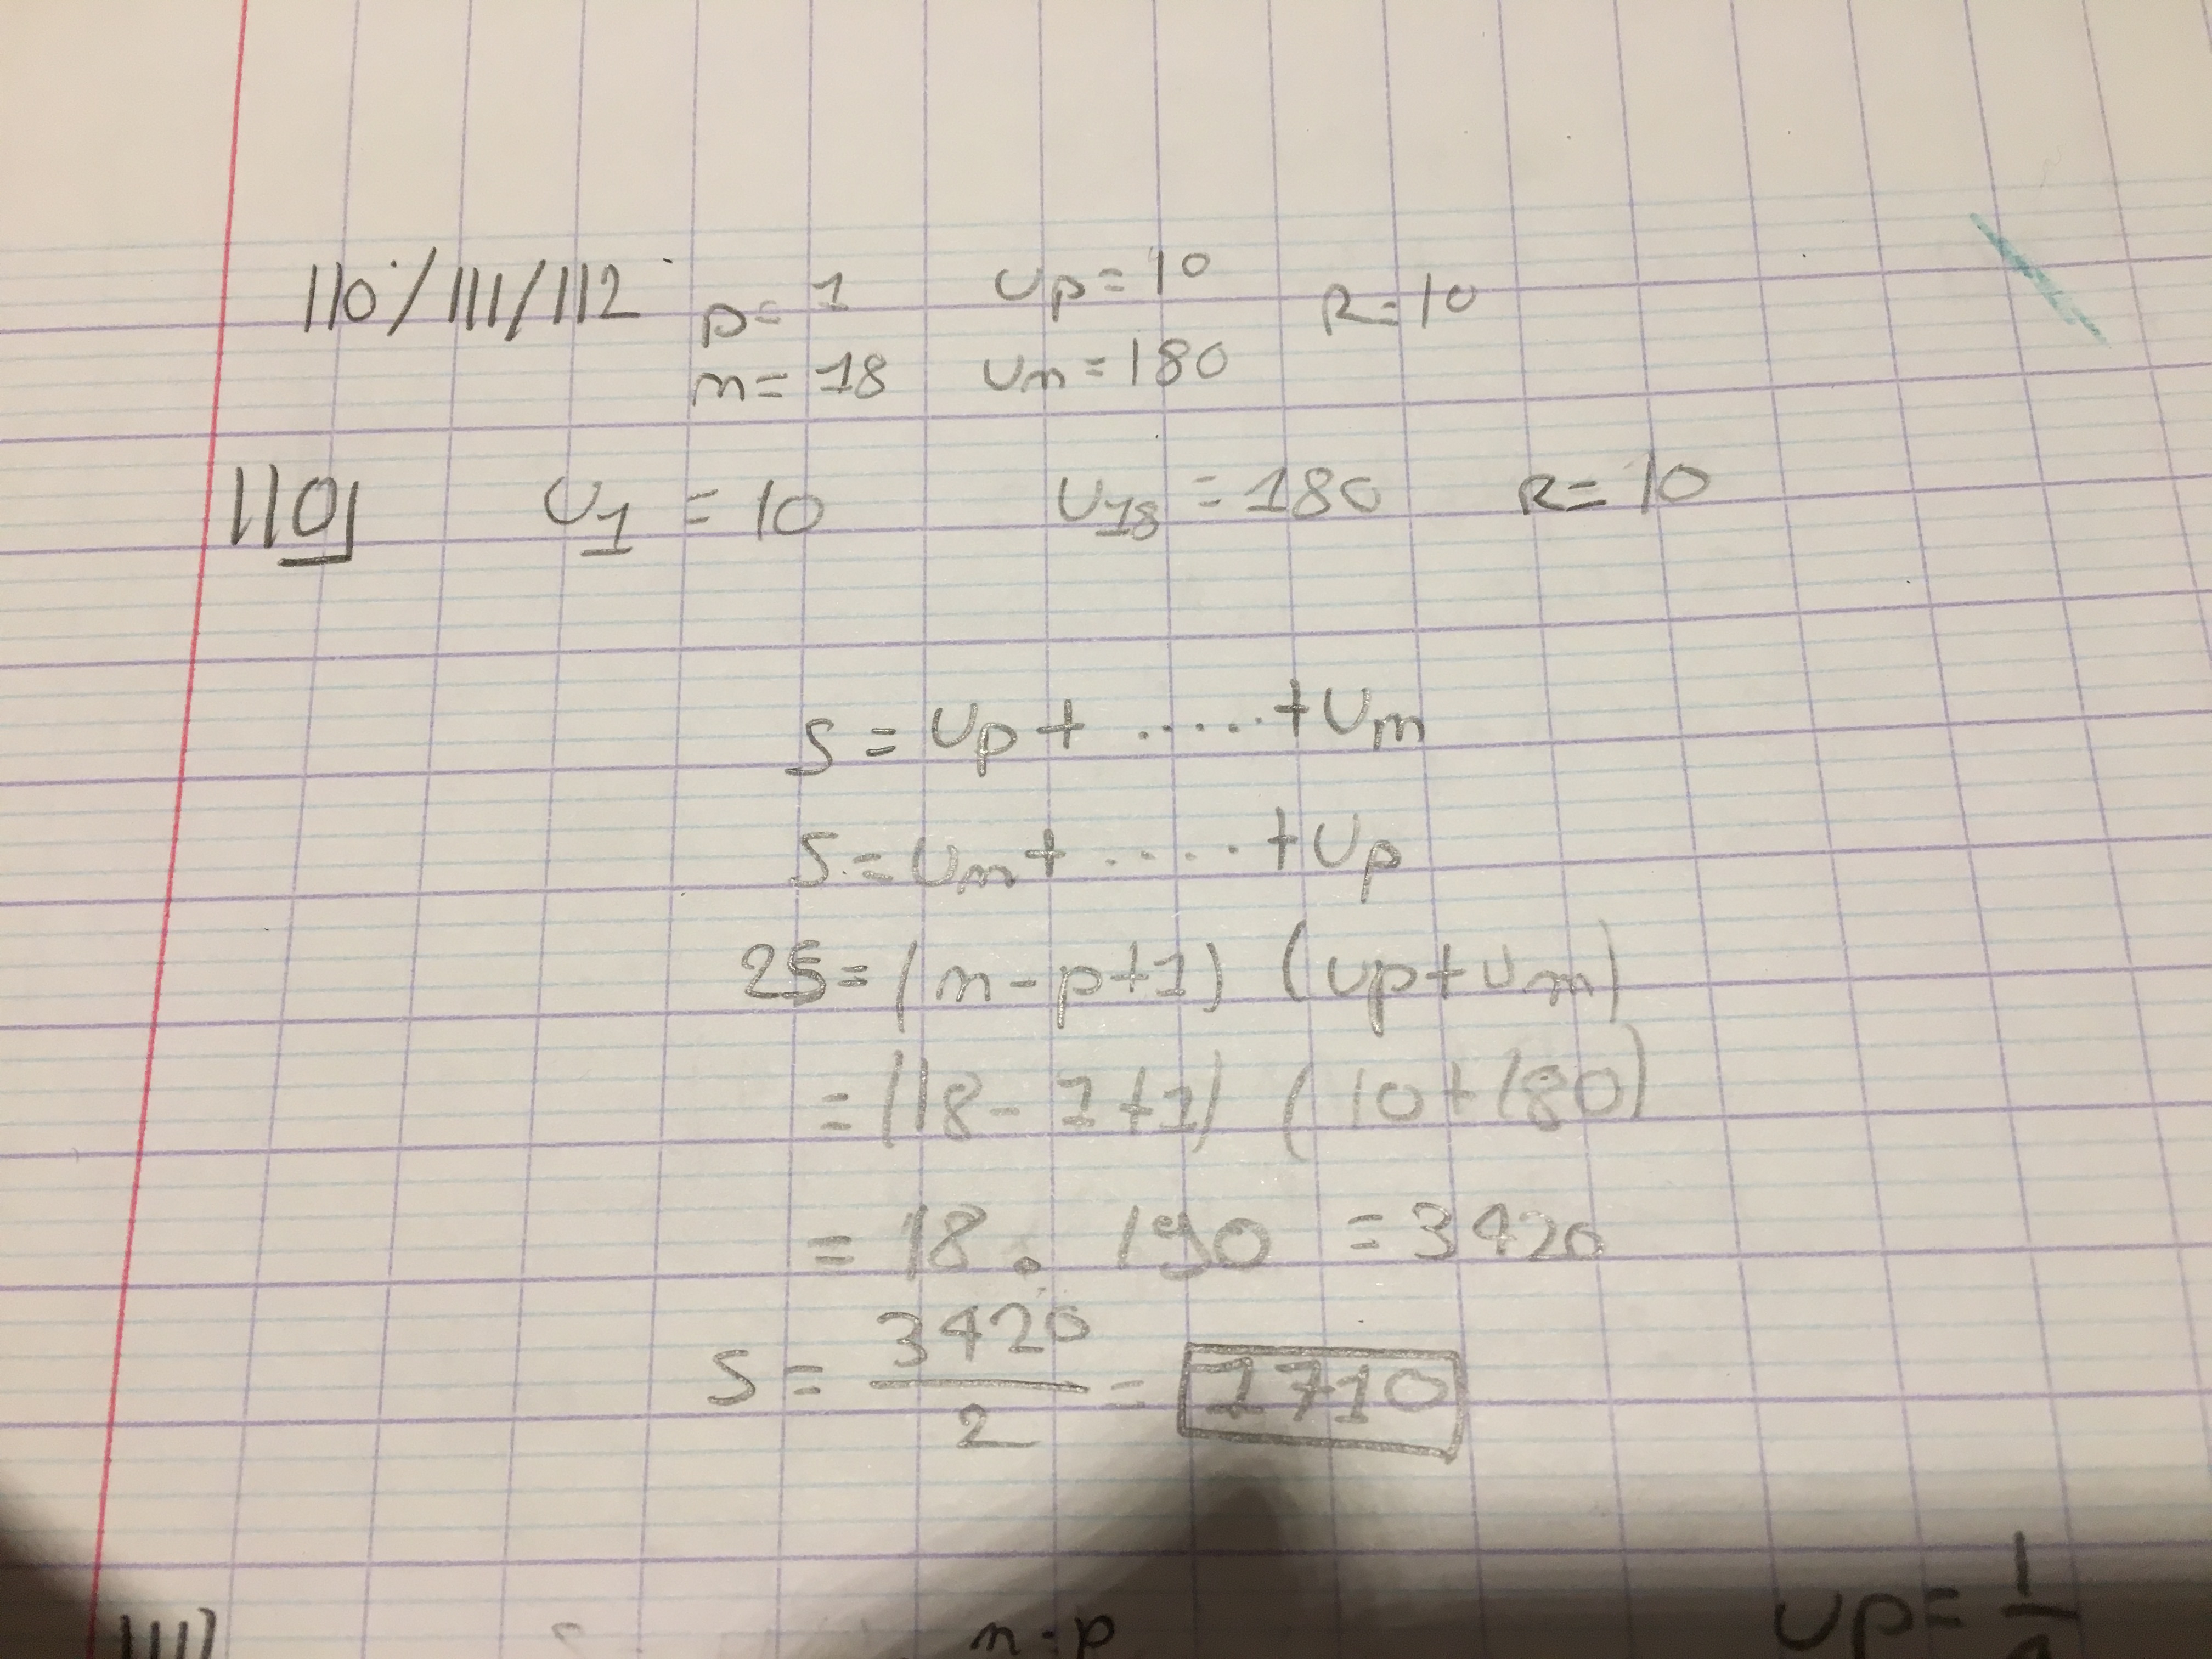 110/111/112 p=1 Up=10 R=10
n=18 Un=180
110) U1=10 U18=180 R=10
S=Up+.....+Un
S=Un+.....+Up
2S=(n-p+1)(Up+Un)
=(18-1+1)(10+180)
=18•190=3420
S=3420/2=1710
111)
n-p
Up=1